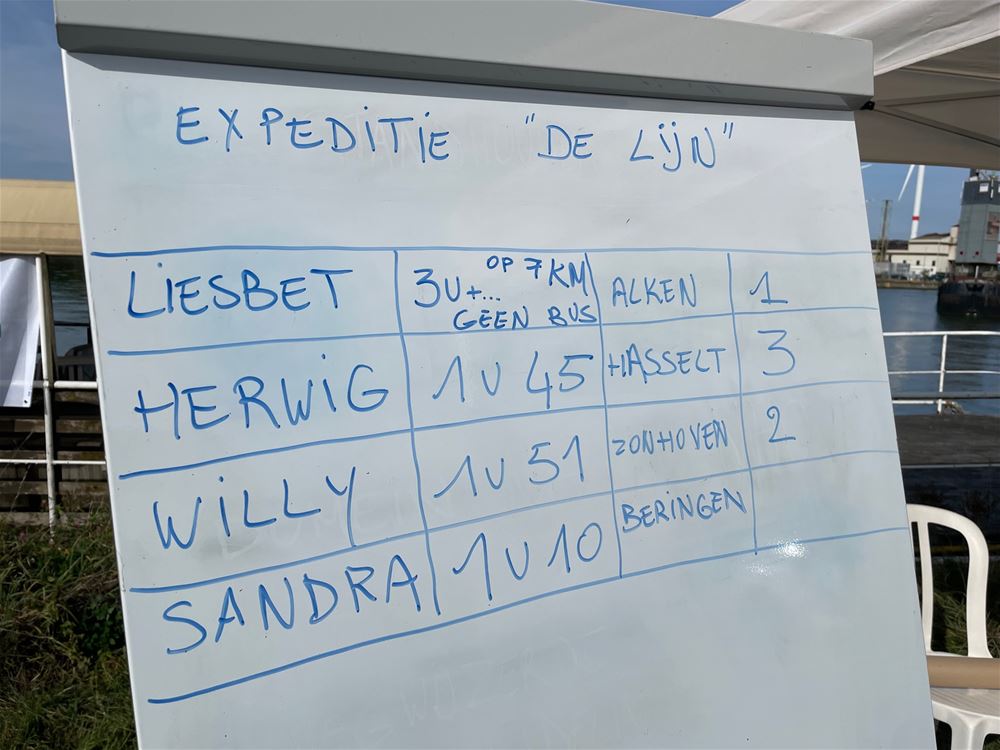 EXPEDITIE "DE LIJN"
LIESBET 3U+... OP 7 KM GEEN BUS ALKEN 1
HERWIG 1U 45 HASSELT 3
WILLY 1U 51 ZONHOVEN 2
SANDRA 1U 10 BERINGEN